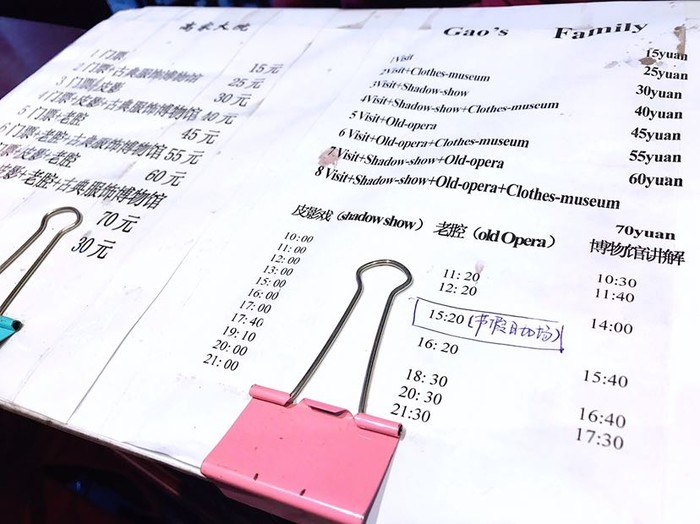 高家大院
1 门票 15元
2 门票+古典服饰博物馆 25元
3 门票+皮影 30元
4 门票+皮影+古典服饰博物馆 40元
5 门票+老腔 45元
门票+老腔+古典服饰博物馆 55元
门票+皮影+老腔 60元
皮影+老腔+古典服饰博物馆
70元
30元
Gao's Family
1Visit 15yuan
2Visit+Clothes-museum 25yuan
3Visit+Shadow-show 30yuan
4Visit+Shadow-show+Clothes-museum 40yuan
5 Visit+Old-opera 45yuan
6 Visit+Old-opera+Clothes-museum 55yuan
7 Visit+Shadow-show+Old-opera 60yuan
8 Visit+Shadow-show+Old-opera+Clothes-museum
70yuan
皮影戏（shadow show） 老腔（old Opera） 博物馆讲解
10:00
11:00
12:00
13:00
15:00
16:00
17:00
17:40
19:10
20:00
21:00
11:20
12:20
15:20 (节假日加场)
16:20
18:30
20:30
21:30
10:30
11:40
14:00
15:40
16:40
17:30